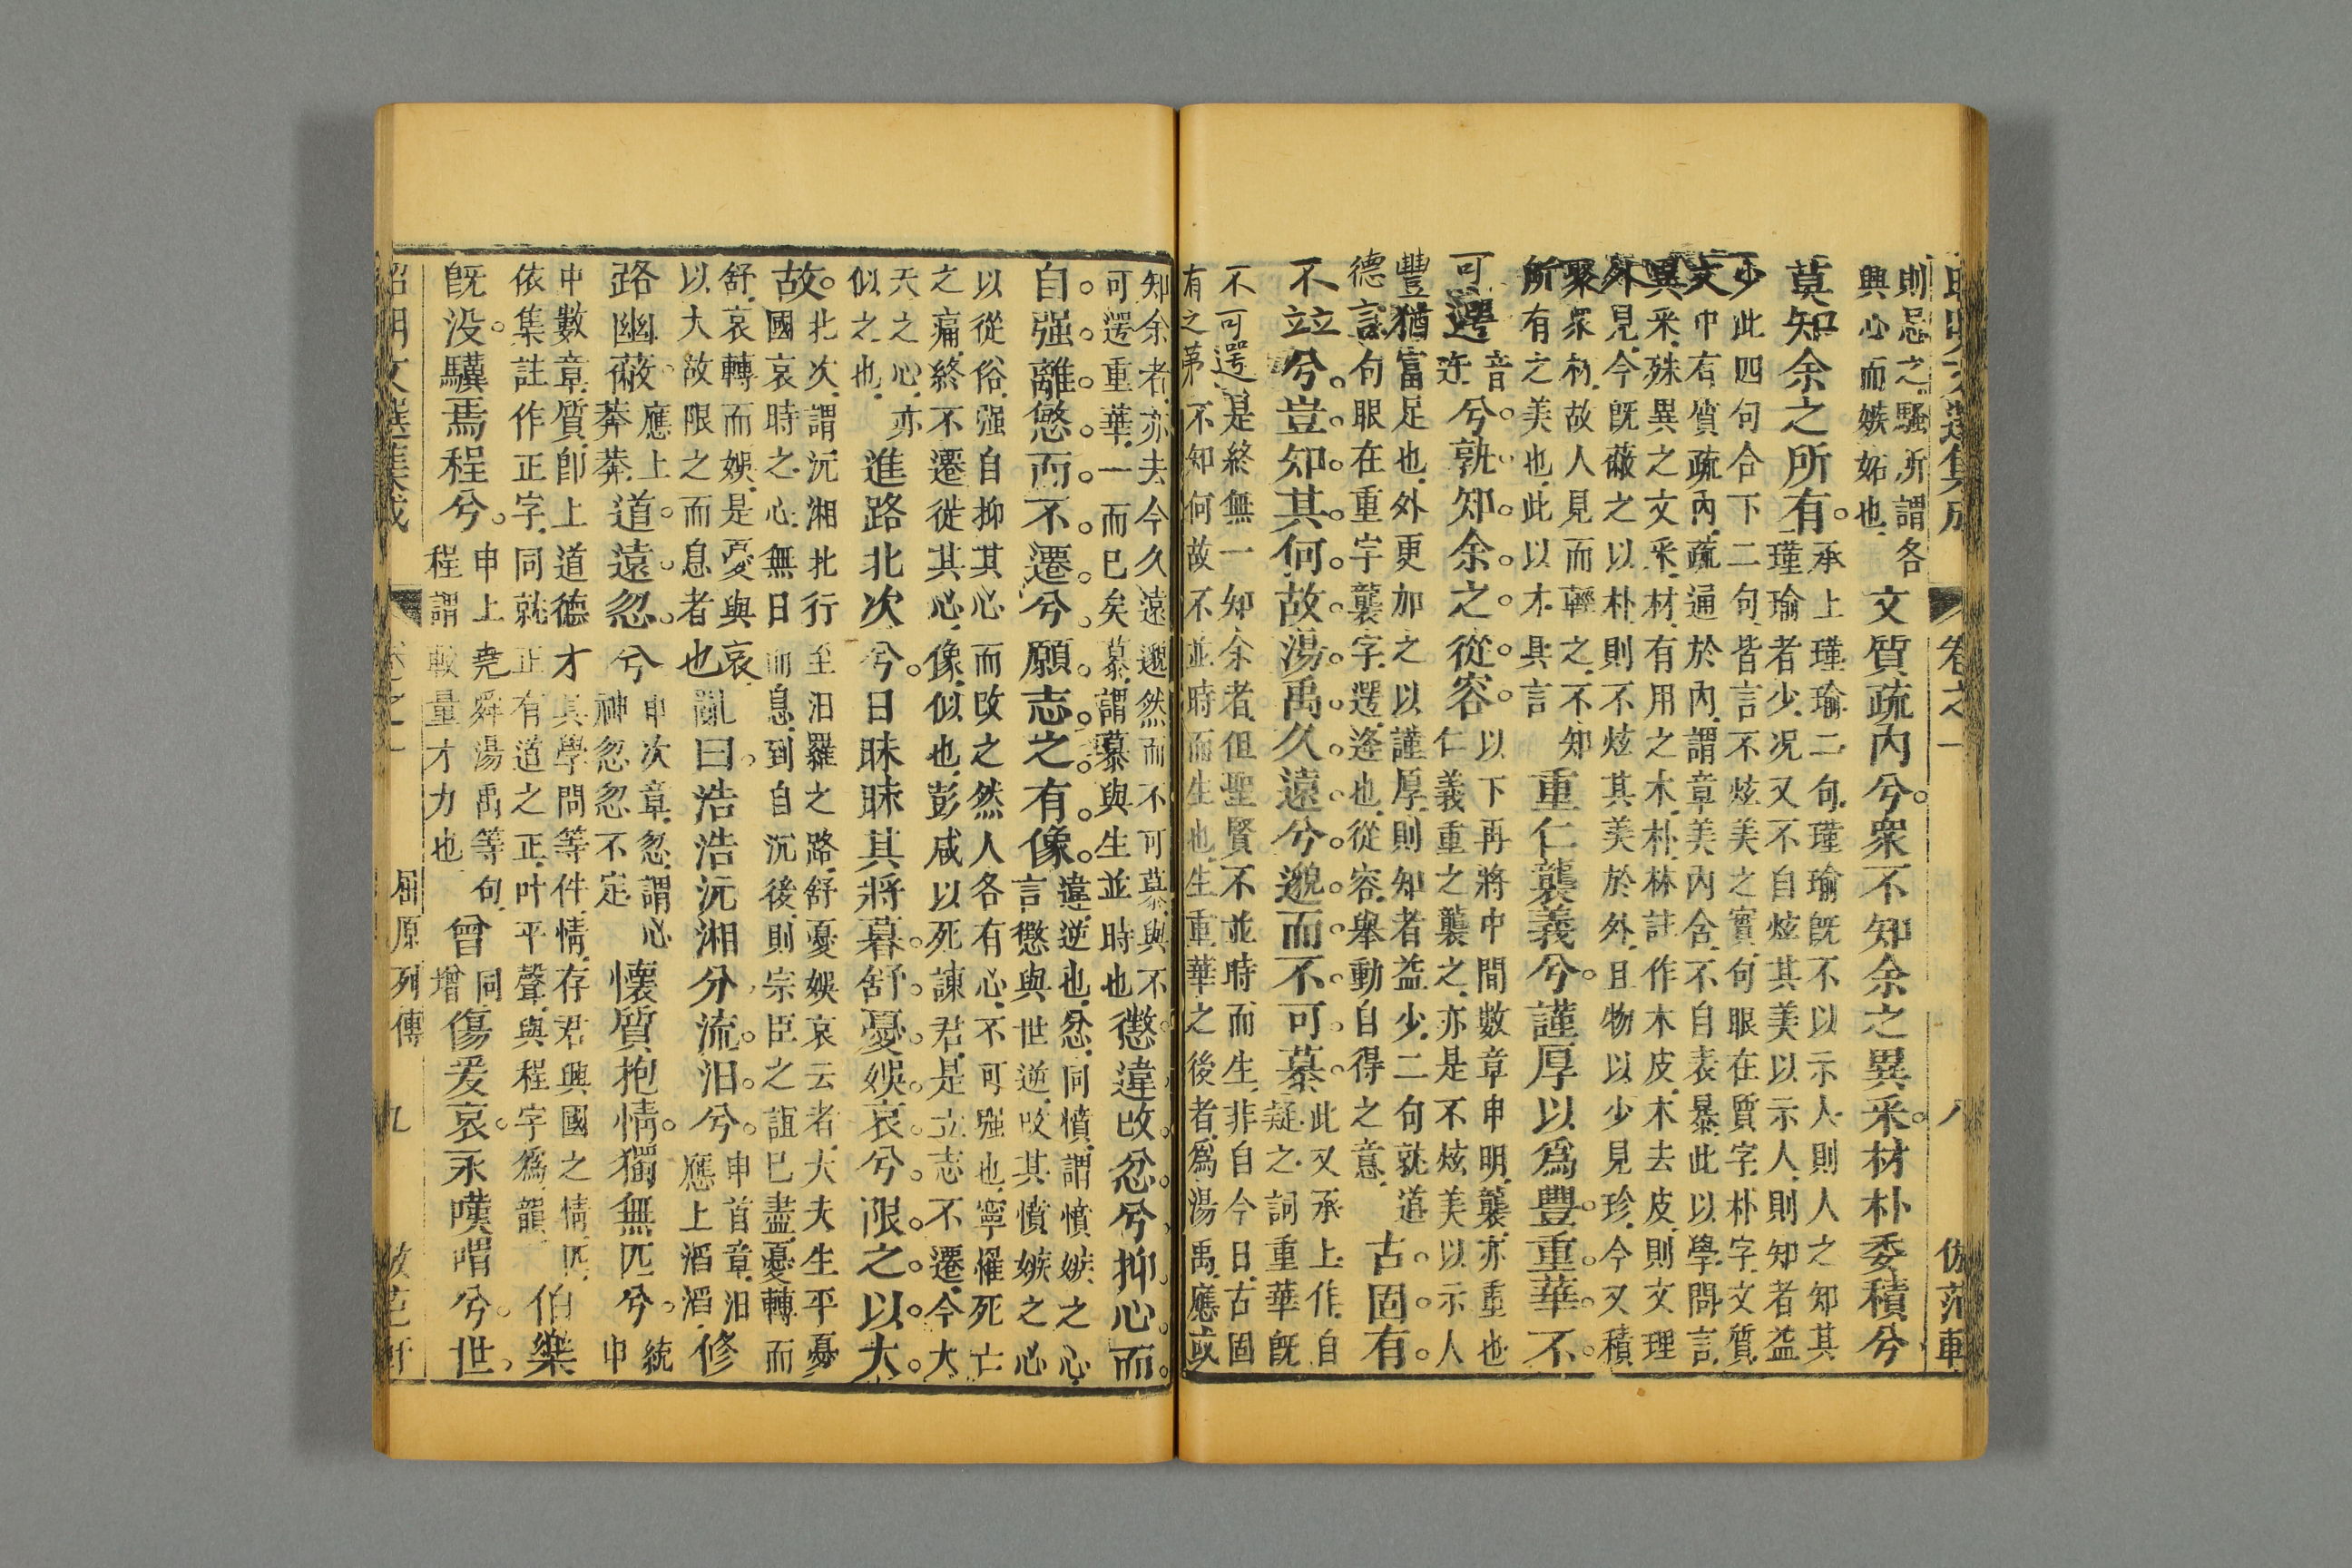 昭明文選集成 卷之一 八 仿范軒
則忌之騷所謂各
興心而嫉妬也
文質疏內兮衆不知余之異采材朴委積兮
莫知余之所有
承上瑾瑜二句瑾瑜旣不以示人則人之知其
瑾瑜者少况又不自炫其美以示人則知者益
少此四句合下二句皆言不炫美之實句眼在質字朴字文質
文巾右質疏內疏通於內謂章美內含不自表暴此以學問言
異采殊異之文采材有用之木朴林註作木皮木去皮則文理
外見今旣蔽之以朴則不炫其美於外且物以少見珍今又積
聚眾材故人見而輕之不知
所有之美也此以木具言
重仁襲義兮謹厚以爲豐重華不
可遻
音
迕
兮孰知余之從容
以下再將中間數章申明襲亦重也
仁義重之襲之亦是不炫美以示人
豐猶富足也外更加之以謹厚則知者益少二句就道
德言句眼在重字襲字遻逢也從容舉動自得之意
古固有
不竝兮豈知其何故湯禹久遠兮邈而不可慕
此又承上作自
疑之詞重華旣
不可遻是終無一如余者但聖賢不並時而生非自今日古固
有之第不知何故不並時而生也生重華之後者爲湯禹應或
知余者亦去今久遠邈然而不可慕與不
可遻重華一而已矣慕謂慕與生並時也
懲違改忿兮抑心而
自强離慜而不遷兮願志之有像
違逆也忿同憤謂憤嫉之心
言懲與世逆改其憤嫉之心
以從俗强自抑其心而改之然人各有心不可强也寧罹死亡
之痛終不遷徙其心像似也彭咸以死諫君是立志不遷今大
天之心亦
似之也
進路北次兮日昧昧其將暮舒憂娛哀兮限之以大
故
北次謂沅湘北行至汨羅之路舒憂娛哀云者大夫生平憂
國哀時之心無日而息到自沉後則宗臣之誼已盡憂轉而
舒哀轉而娛是憂與哀
以大故限之而息者也
亂曰浩浩沅湘分流汨兮
申首章汨
應上滔滔
修
路幽蔽
應上
莽莽
道遠忽兮
申次章忽謂心
神忽忽不定
懷質抱情獨無匹兮
統
申
中數章質卽上道德才其學問等件情存君興國之情匹
依集註作正字同就正有道之正叶平聲與程字爲韻
伯樂
旣没驥焉程兮
申上堯舜湯禹等句
程謂較量才力也
曾
同
增
傷爰哀永嘆喟兮世
昭明文選集成 卷之一 屈原列傳 九 仿范軒